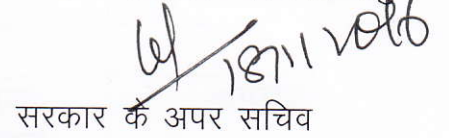 18/11/2016
सरकार के अपर सचिव